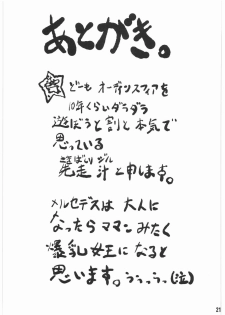 あとがき。
どーも オーディンスフィアを
10年くらいダラダラ
遊ぼうと割と本気で
思っている
先走汁と申します。
さきばしり ジル
メルセデスは大人に
なったらママンみたく
爆乳女王になると
思います。うぅっうっ(泣)
21